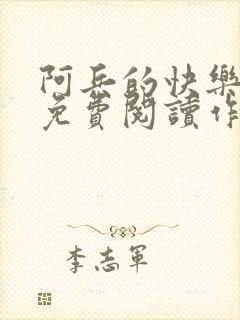 阿兵的快樂
免費閱讀作
李志軍